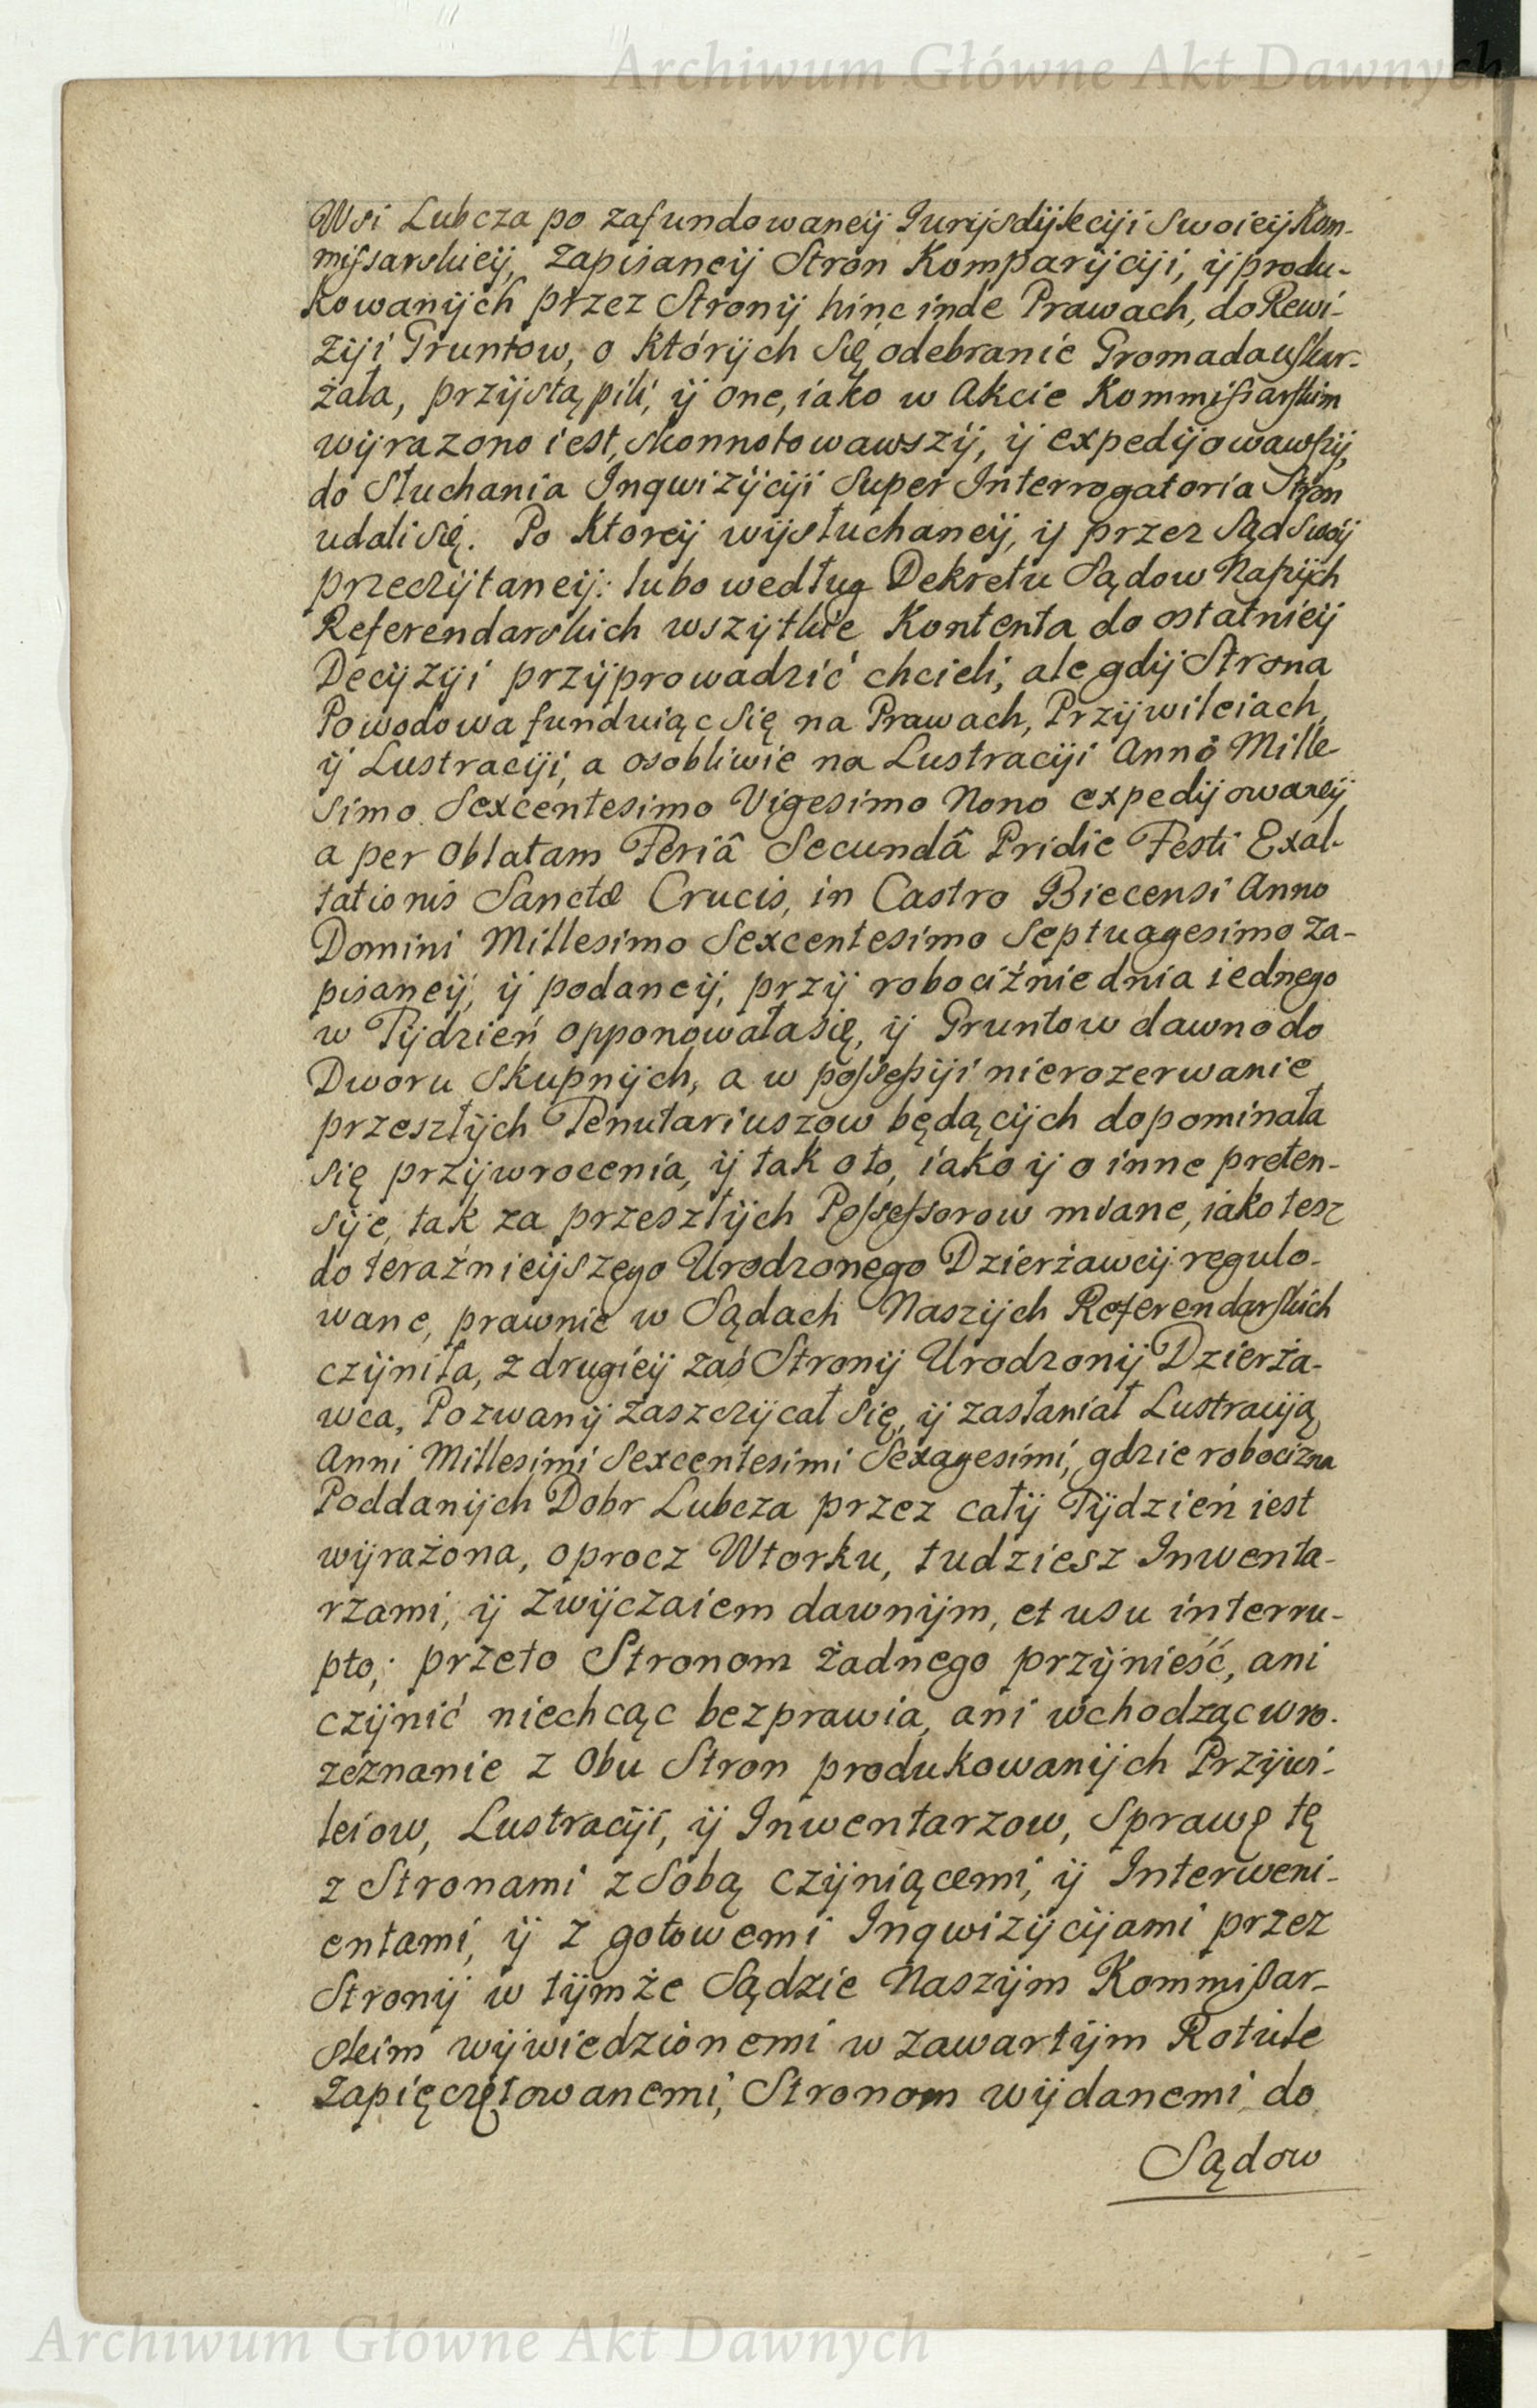 Archiwum Główne Akt Dawnych
Wsi Lubcza po zafundowaneij Jurijsdijkciji Swoieij Kom-
missarskieij, Zapisaneij Stron Komparijciji, ij produ-
kowanijch przez Stronij hinc inde Prawach, do Rewi-
ziji Gruntow, o którijch Się odebranie Gromada uskar-
żała, przijstąpili, ij one, iako w Akcie Kommissarskim
wijrazono iest, skonnotowawszij, ij expedijowawszij,
do Słuchania Inqwizijciji Super Interrogatoria Stron
udali się. Po Ktoreij wijsłuchaneij, ij przez Sąd Swóij
przeczijtaneij: lubo według Dekretu Sądow Naszijch
Referendarskich wszijtkie Kontenta do ostatnieij
Decijziji przijprowadzić chcieli, ale gdij Strona
Powodowa funduiąc Się na Prawach, Przijwileiach,
ij Lustraciji, a osobliwie na Lustraciji Annô Mille-
simo Sexcentesimo Vigesimo Nono expedijowaneij,
a per Oblatam Feriâ Secundâ Pridie Festi Exal-
tationis Sanctæ Crucis, in Castro Biecensi Anno
Domini Millesimo Sexcentesimo Septuagesimo za-
pisaneij, ij podaneij, przij robociźnie dnia iednego
w Tijdzień opponowała się, ij Gruntow dawno do
Dworu Skupnijch, a w possessiji nierozerwanie
przeszłijch Tenutariuszow będącijch dopominała
się przijwrocenia, ij tak o to, iako ij o inne preten-
sije, tak za przeszłijch Possessorow miane, iako tesz
do teraźnieijszego Urodzonego Dzierżawcij regulo-
wane, prawnie w Sądach Naszijch Referendarskich
czijniła, z drugieij zaś Stronij Urodzonij Dzierża-
wca, Pozwanij zaszczijcał się, ij zasłaniał Lustraciją
Anni Millesimi Sexcentesimi Sexagesimi, gdzie robocizna
Poddanijch Dobr Lubcza przez całij Tijdzień iest
wijrażona, oprocz Wtorku, tudziesz Inwenta-
rzami, ij zwijczaiem dawnijm, et usu interru-
pto; przeto Stronom żadnego przijnieść, ani
czijnić niechcąc bezprawia, ani wchodząc w ro-
zeznanie z Obu Stron produkowanijch Przijwi-
leiow, Lustraciji, ij Inwentarzow, Sprawę tę
z Stronami z Sobą czijniącemi, ij Interweni-
entami, ij z gotowemi Inqwizijcijami przez
Stronij w tijmże Sądzie Naszijm Kommissar-
skim wijwiedzionemi w zawartijm Rotule
Zapięczętowanemi, Stronom wijdanemi do
Sądow
Archiwum Główne Akt Dawnych